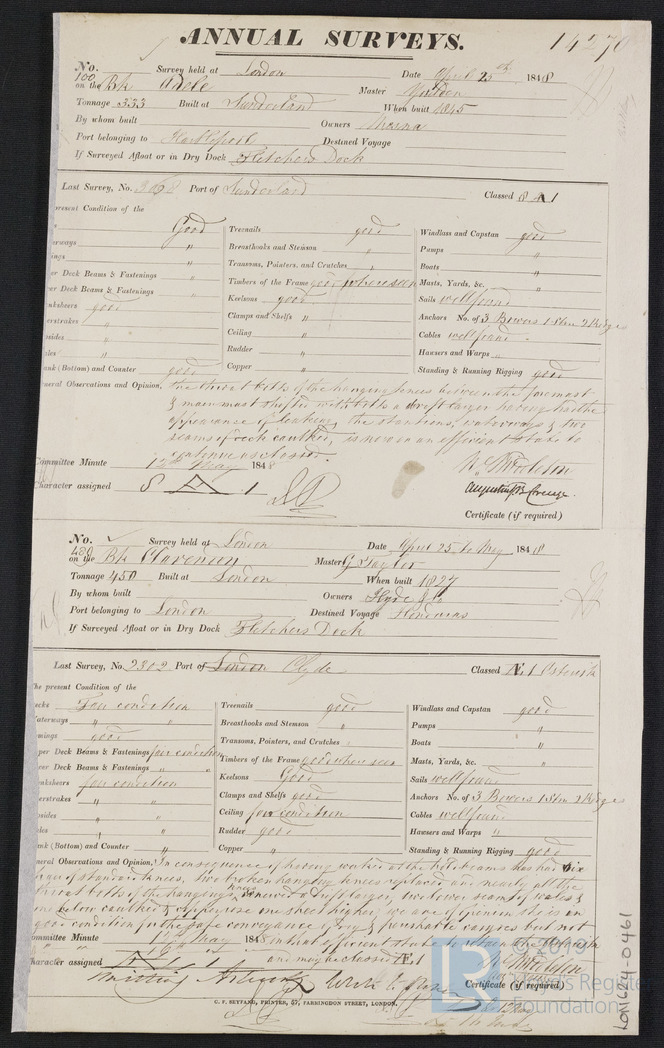 ANNUAL SURVEYS.
14270
No. 100 Survey held at London Date April 25th 1848
on the Bk Adele Master
Tonnage 333 Built at Sunderland When built 1845
By whom built Owners
Port belonging to Hartlepool Destined Voyage
If Surveyed Afloat or in Dry Dock Fletchers Dock
Last Survey, No. Port of Sunderland Classed 8 A 1
present Condition of the
Good Treenails good Windlass and Capstan good
erways " Breasthooks and Stemson " Pumps "
ngs " Transoms, Pointers, and Crutches " Boats "
er Deck Beams & Fastenings " Timbers of the Frame good where seen Masts, Yards, &c. "
er Deck Beams & Fastenings " Keelsons good Sails well found
nksheers good Clamps and Shelfs " Anchors No. of 3 Bowers 1 Stm 2 Kedges
erstrakes " Ceiling " Cables well found
sides " Rudder " Hawsers and Warps "
ales " Copper " Standing & Running Rigging good
ank (Bottom) and Counter good
neral Observations and Opinion, the thwart bolts of the hanging knees between the foremast
& main mast shifted with bolts a drift larger having had the
appearance of leaking, the stantions, waterways & two
seams of deck caulked, is now in an efficient state to
continue as classed.
Committee Minute 12th May 1848
Character assigned 8 A 1
Certificate (if required)
No. 430 Survey held at London Date April 25 to May 1848
on the Bk Clarendon Master G Taylor
Tonnage 450 Built at London When built 1827
By whom built Owners Hyde & Co
Port belonging to London Destined Voyage Honduras
If Surveyed Afloat or in Dry Dock Fletchers Dock
Last Survey, No. 2302 Port of London Clyde Classed Æ 1 Asterisk
the present Condition of the
ecks Fair condition Treenails good Windlass and Capstan good
aterways " " Breasthooks and Stemson " Pumps "
mings good Transoms, Pointers, and Crutches " Boats "
per Deck Beams & Fastenings fair condition Timbers of the Frame good where seen Masts, Yards, &c. "
wer Deck Beams & Fastenings " " Keelsons Good Sails well found
anksheers fair condition Clamps and Shelfs good Anchors No. of 3 Bowers 1 Stm 2 Kedges
erstrakes " " Ceiling fair condition Cables well found
psides " " Rudder good Hawsers and Warps "
ales " " Copper " Standing & Running Rigging good
ank (Bottom) and Counter " "
neral Observations and Opinion, In consequence of having worked at the hold beams has had six
of standard knees, two broken hanging knees replaced and nearly all the
thwart bolts of the hanging knees renewed a drift larger, two lower seams of wales &
one below caulked & coppered one sheet higher, we are of opinion she is in
good condition for the safe conveyance of dry & perishable cargoes but not
ommittee Minute May 1848 in that efficient state to retain the Asterisk
and may be classed Æ 1
haracter assigned
Certificate (if required)
C. F. SEYFANG, PRINTER, 57, FARRINGDON STREET, LONDON.
© 2019
Lloyd's Register
Foundation
LON624-0461